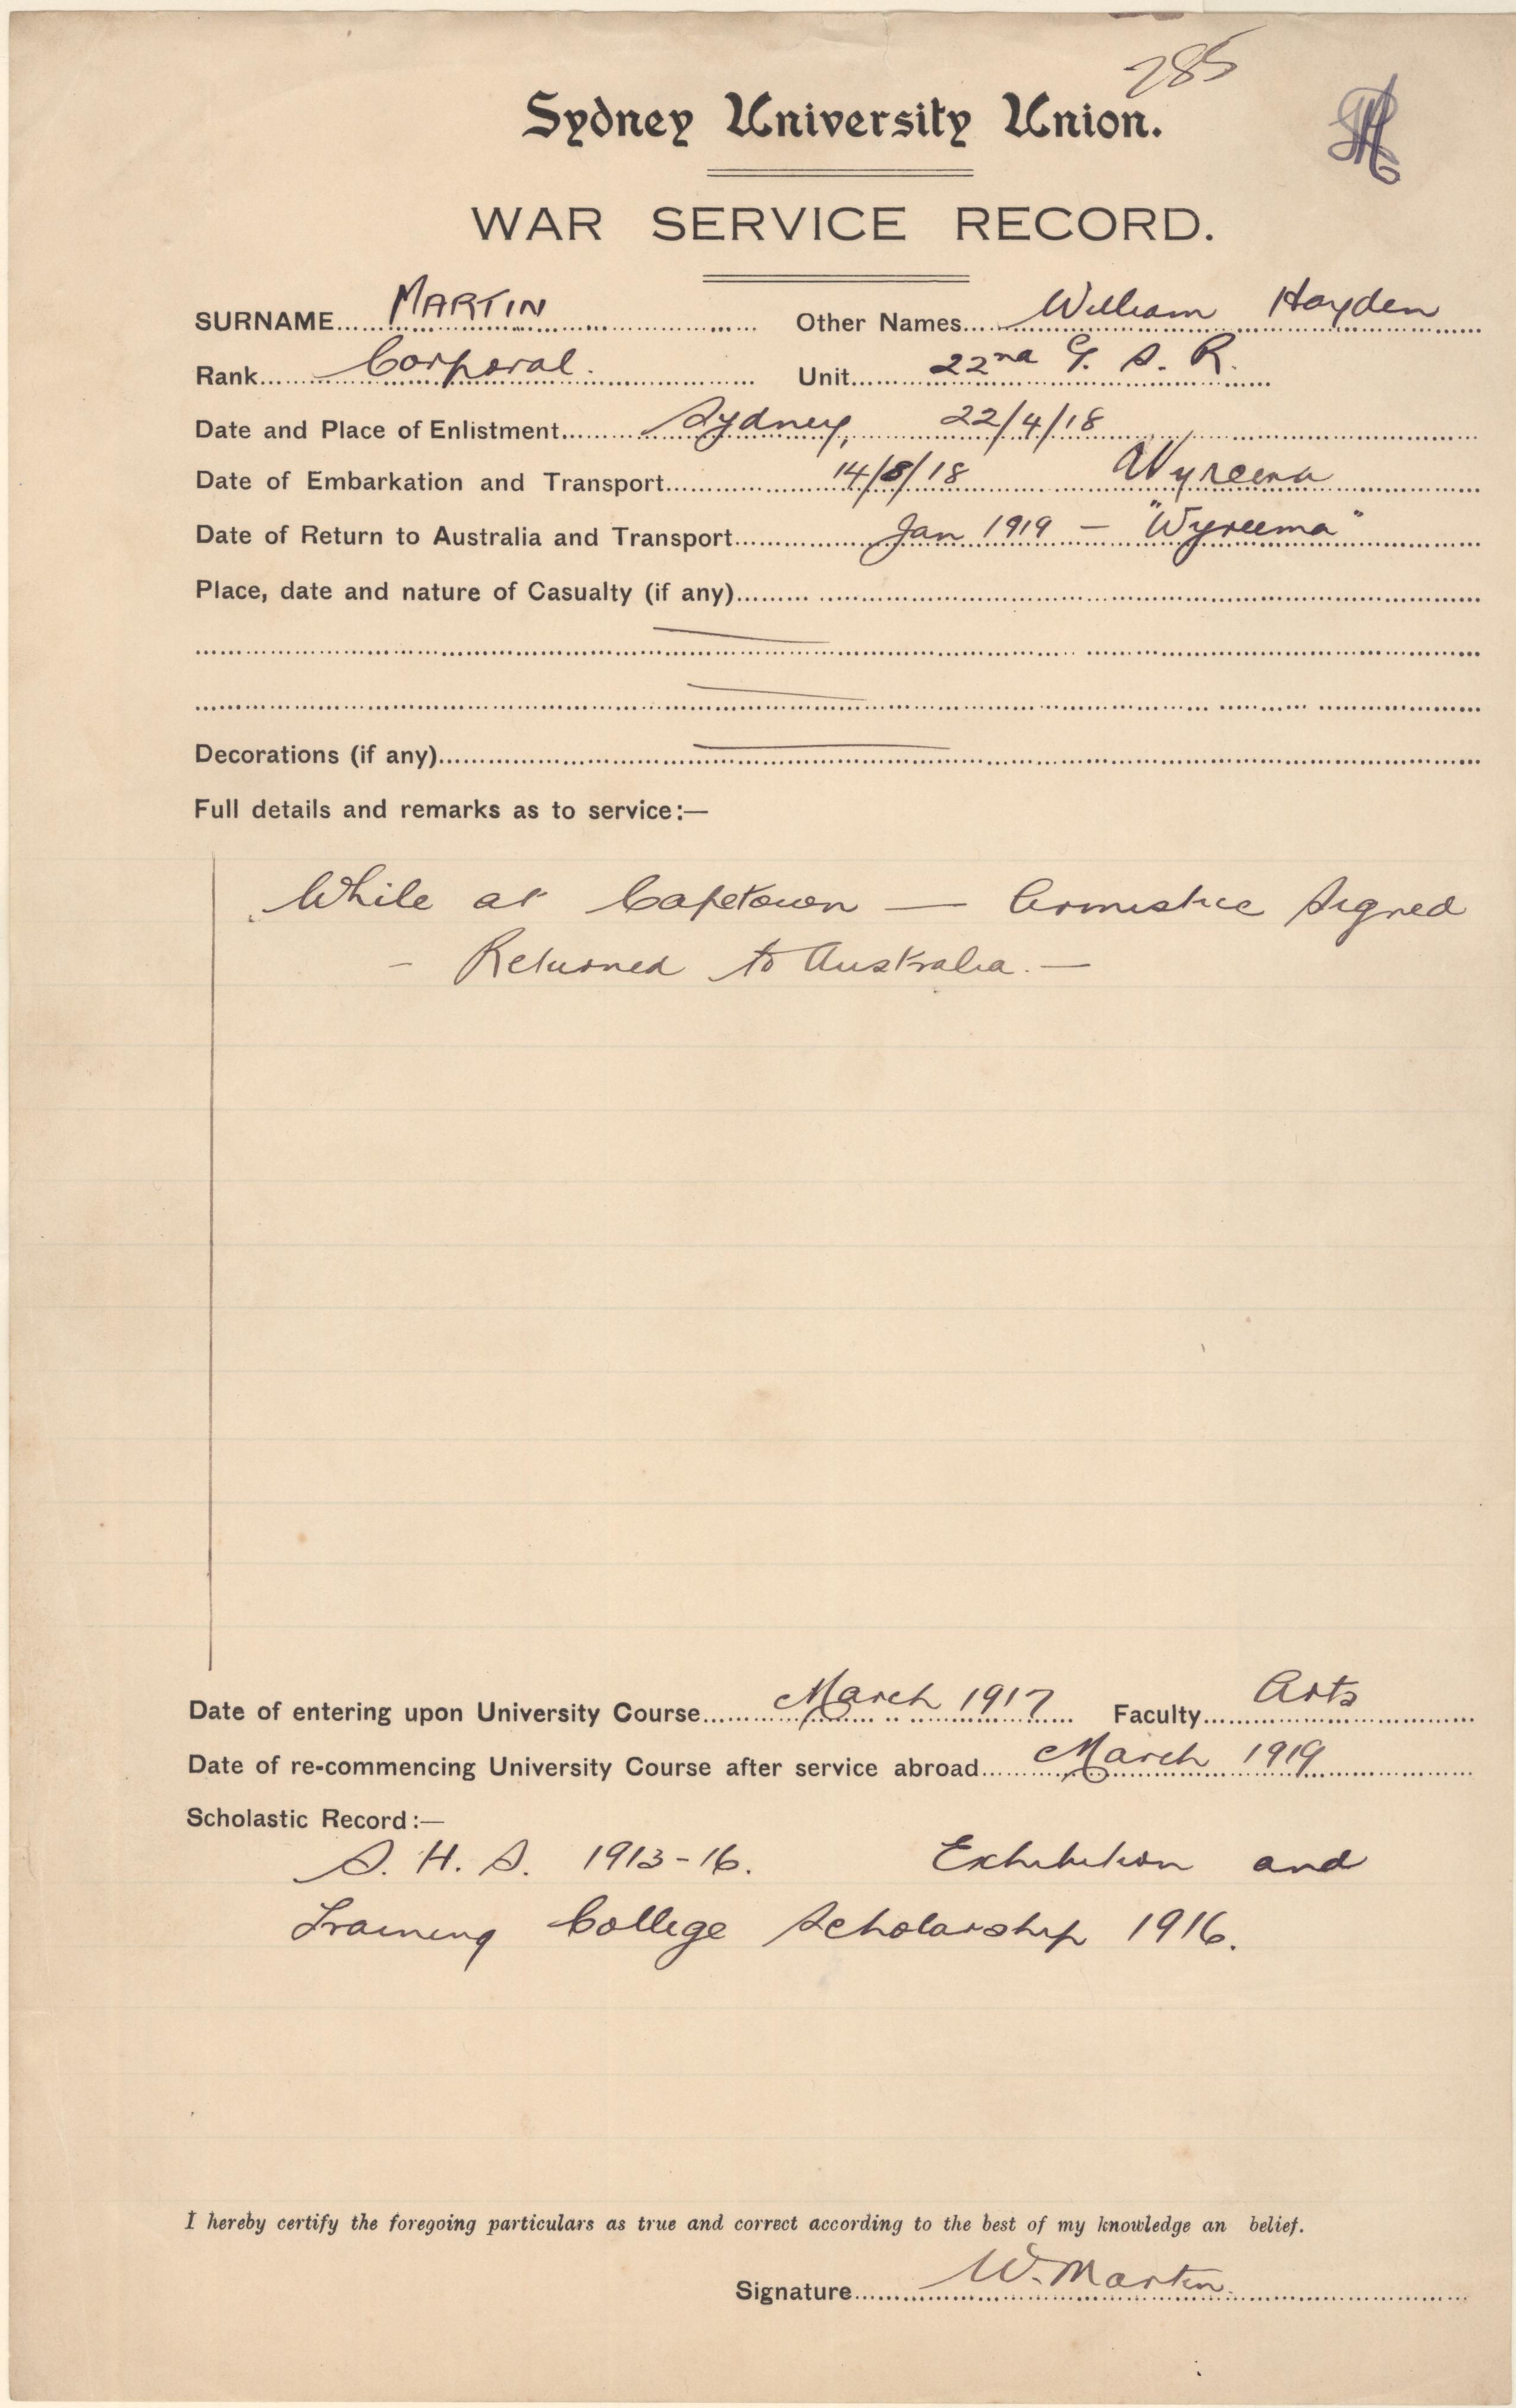 285
Sydney University Union.
WAR SERVICE RECORD.
SURNAME MARTIN Other Names William Hayden
Rank Corporal. Unit 22nd G. S. R.
Date and Place of Enlistment Sydney, 22/4/18
Date of Embarkation and Transport 14/8/18 Wyreena
Date of Return to Australia and Transport Jan 1919 — "Wyreema"
Place, date and nature of Casualty (if any)
Decorations (if any)
Full details and remarks as to service:—
While at Capetown — Armistice Signed
- Returned to Australia. —
Date of entering upon University Course March 1917 Faculty Arts
Date of re-commencing University Course after service abroad March 1919
Scholastic Record:—
S. H. S. 1913-16. Exhibition and
Training College Scholarship 1916.
I hereby certify the foregoing particulars as true and correct according to the best of my knowledge an belief.
Signature W. Martin.